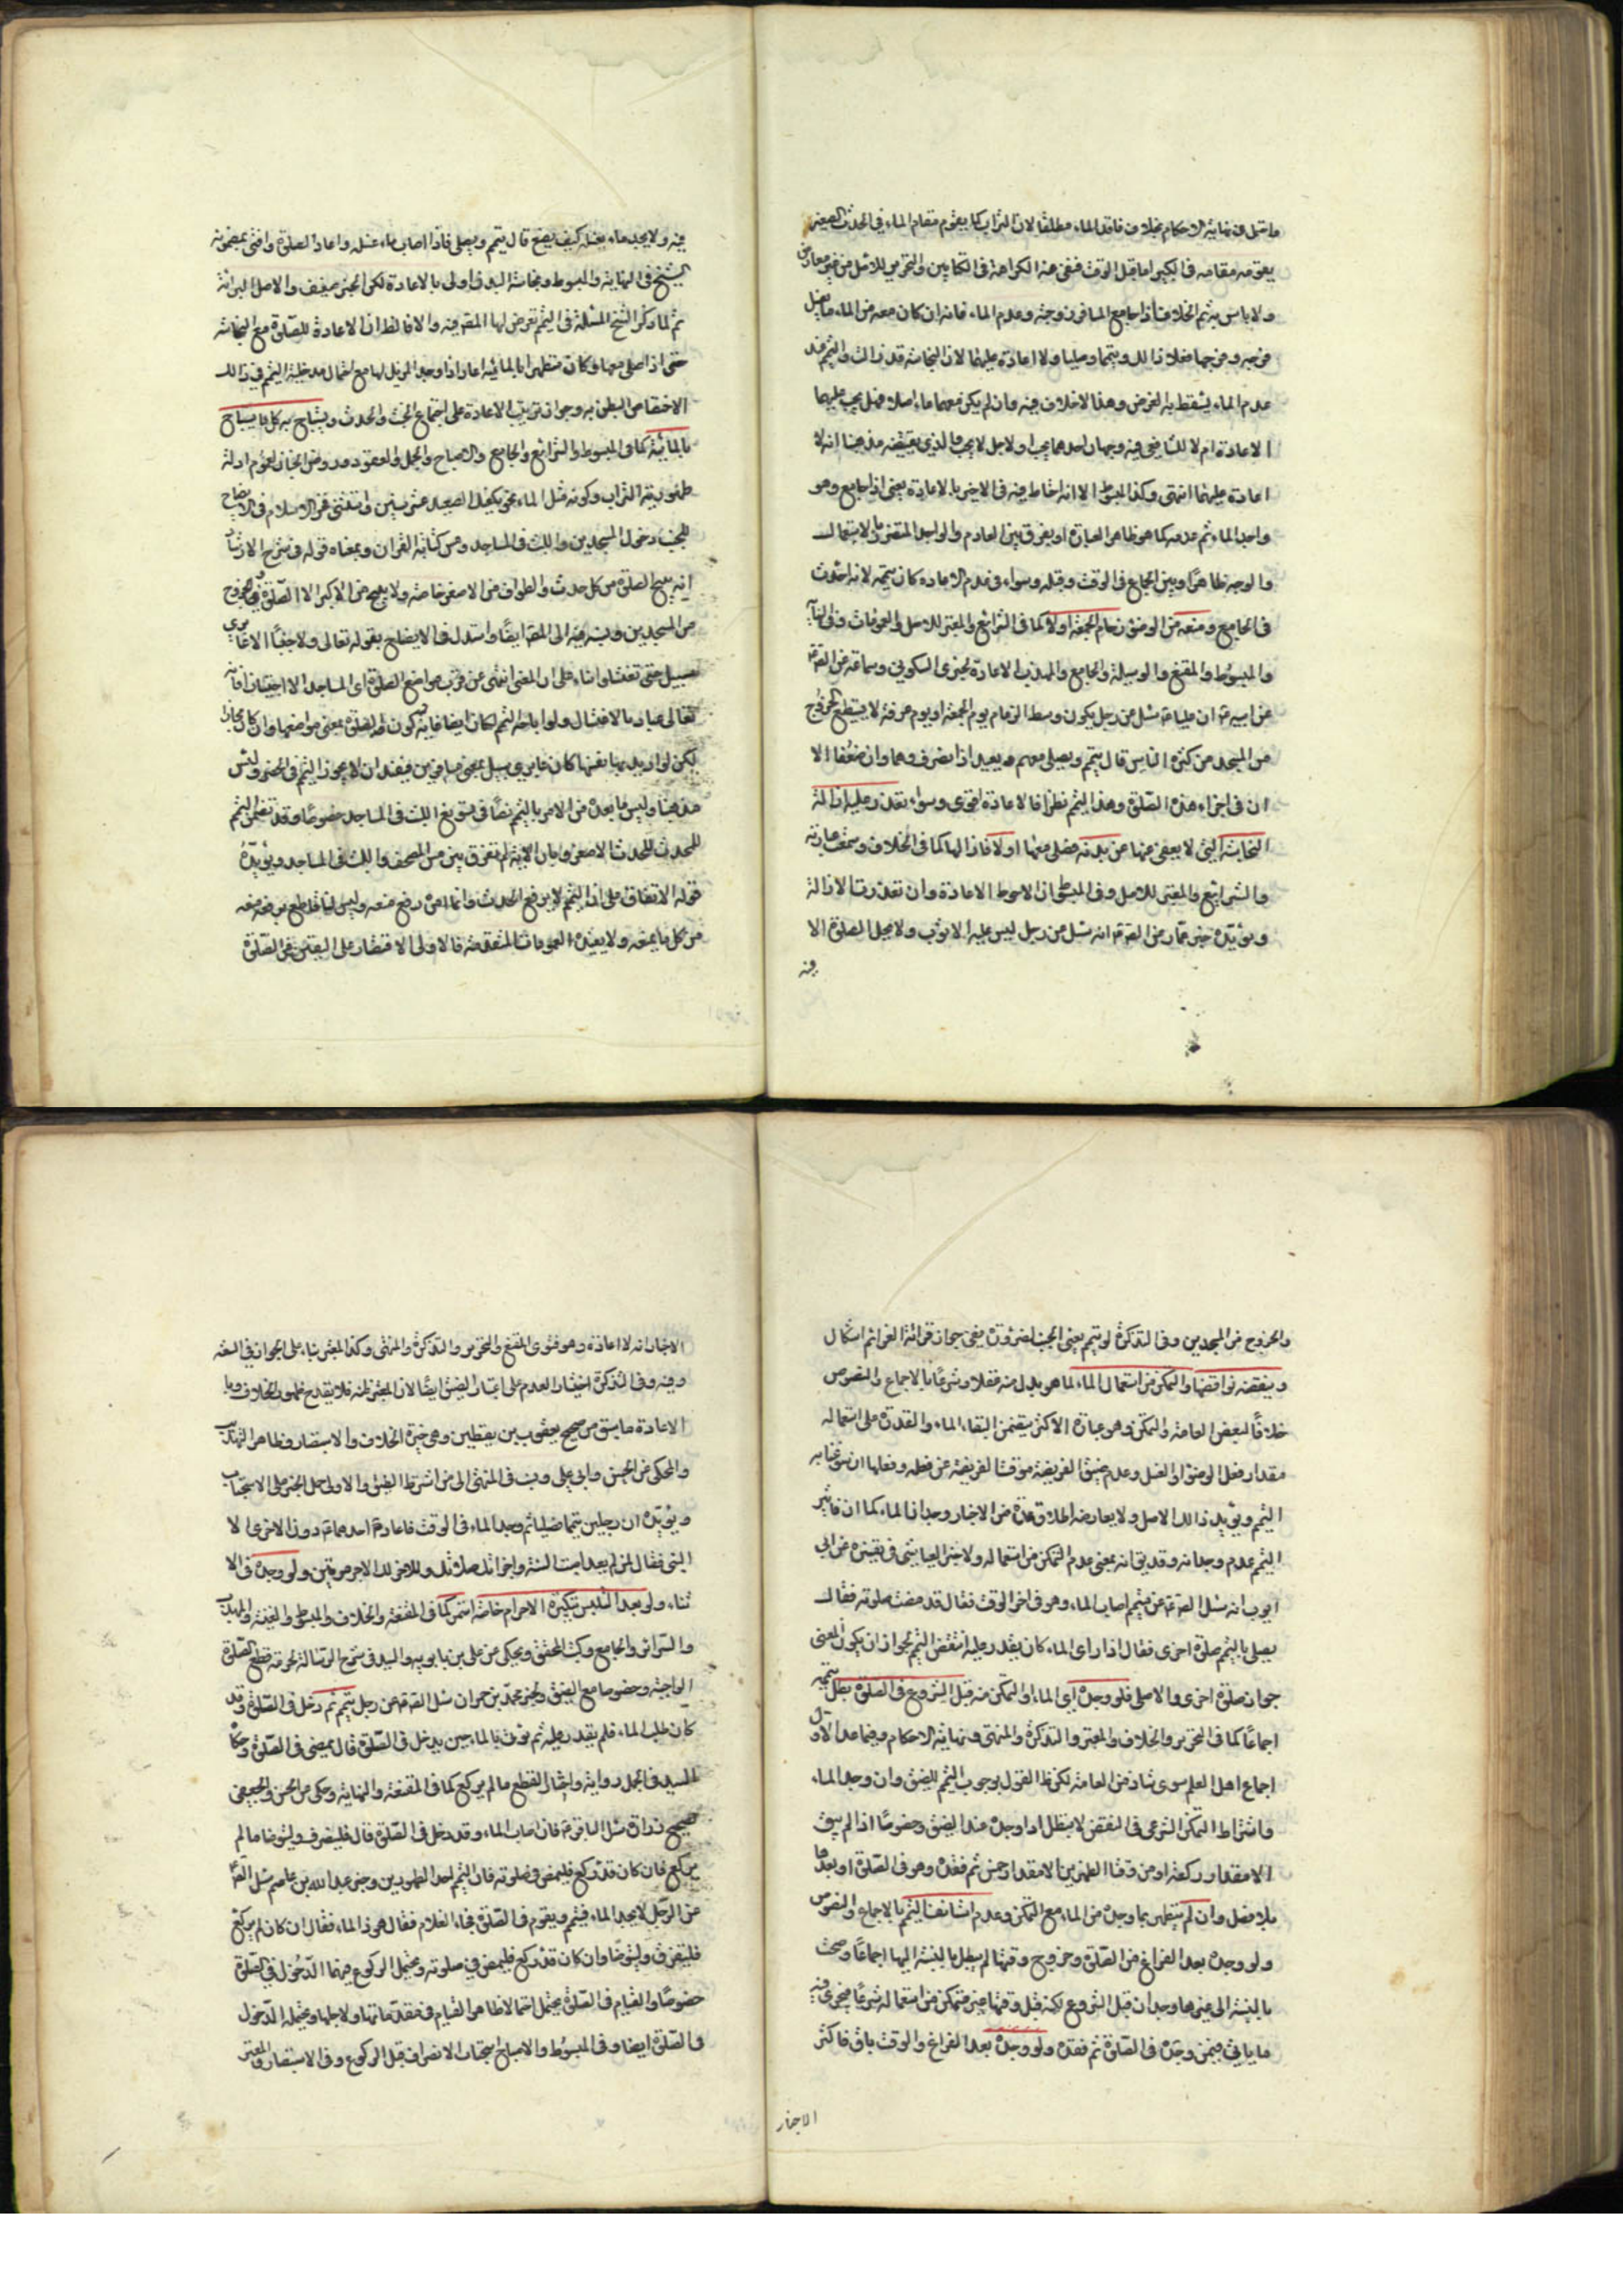 ما قبل في نهاية الاحكام بخلاف فاقد الماء مطلقا لان التراب كما يقوم مقام الماء في الحدث الصغير
يقوم مقامه في الكبير اما قبل الوقت ففي هذا الكراهة في الكتابين والتحرير للاصل من غير معارض
ولا باس به ثم الخلاف اذا جامع المسافر زوجته وعدم الماء فانه ان كان معه من الماء ما يغسل
فرجه وفرجها فعلا ذالك ويتمما وصليا ولا اعادة عليهما لان النجاسة قد زالت والتيمم عند
عدم الماء يسقط به الفرض وهذا لاخلاف فيه وان لم يكن معهما ماء اصلا فهل يجب عليهما
الاعادة ام لا للشافعي فيه وجهان احدهما يجب والاخر لا يجب والذي يقتضيه مذهبنا انه لا
اعادة عليهما انتهى وكذا المبسوط الا انه احتاط فيه في الاخير بالاعادة يعني اذا جامع وهو
واجد الماء ثم عدمه كما هو ظاهر العبارة او يفرق بين العادم والواجد المتضرر بالاستعمال
والوجه ظاهر او بين الجماع في الوقت وقبله وسواء في عدم الاعادة كان تيممه لانه احدث
في الجامع ومنعه من الوضوء زحام الجمعة اولا كما في الشرائع والمعتبر للاصل والعمومات وفي النهاية
والمبسوط والمقنع والوسيلة والجامع والمهذب الاعادة لخبري السكوني وسماعة عن الصادق
عن ابيه ان عليا سئل عن رجل يكون وسط الزحام يوم الجمعة او يوم عرفة لا يستطيع الخروج
من المسجد من كثرة الناس قال يتيمم ويصلي معهم ويعيد اذا انصرف وهما وان ضعفا الا
ان في اجزاء هذه الصلوة وهذا التيمم نظرا فالاعادة اقوى وسواء تعذر عليه ازالة
النجاسة التي لا يعفى عنها عن بدنه فصلى معها اولا فازالها كما في الخلاف وسمعت عبارته
والشرائع والمعتبر للاصل وفي المبسوط ان الاحوط الاعادة وان تعذرت الازالة
ويؤيده خبر عمار عن الصادق انه سئل عن رجل ليس عليه الا ثوب ولا يحل الصلوة الا
فيه
فيه ولا يجد ماء يغسله كيف يصنع قال يتيمم ويصلي فاذا اصاب ماء غسله واعاد الصلوة وافتى بمضمونه
الشيخ في النهاية والمبسوط ونجاسة البدن اولى بالاعادة لكن الخبر ضعيف والاصل البرائة
ثم لما ذكر الشيخ المسئلة في التيمم تعرض لها المصنف فيه والا فالظاهر ان الاعادة للصلوة مع النجاسة
حتى اذا صلى معها وكان متطهرا بالمائية اعاد اذا وجد المزيل لها مع احتمال مدخلية التيمم في ذالك
الاختصاص البطن به وجواز ترتيب الاعادة على اجتماع الخبث والحدث ويستباح به كل ما يستباح
بالمائية كما في المبسوط والشرائع والجامع والاصباح والجمل والعقود وروض الجنان لعموم ادلة
طهورية التراب وكونه مثل الماء نحو يكفيك الصعيد عشر سنين واستثنى فخر الاسلام في الايضاح
للجنب دخول المسجدين واللبث في المساجد ومس كتابة القرآن وبمعناه قوله في شرح الارشاد
انه يبيح الصلوة من كل حدث والطواف من الاصغر خاصة ولا يبيح من الاكبر الا الصلوة والخروج
من المسجدين ونسبه فيه الى المصنف ايضا واستدل في الايضاح بقوله تعالى ولا جنبا الا عابري
سبيل حتى تغتسلوا بناء على ان المعنى النهي عن قرب مواضع الصلوة اي المساجد الا اجتيازا فانه
تعالى غياه بالاغتسال ولو اباحه التيمم لكان ايضا غاية وكون الصلوة بمعنى مواضعها وان كان مجازا
لكن لو اريد بها نفسها كان عابري سبيل بمعنى مسافرين فيفيد ان لا يجوز التيمم في الحضر وليس
مذهبنا وليس ما بعده من الامر بالتيمم نصا في تسويغ اللبث في المساجد خصوصا وقد تضمن التيمم
للمحدث الحدث الاصغر وبان الاية لم تفرق بين مس المصحف واللبث في المساجد ويؤيده
قوله الاتفاق على ان التيمم لا يرفع الحدث وانما امره رفع منعه وليس لنا قاطع برفعه منعه
من كل ما يمنعه ولا يفيده العمومات المتقدمة فالاولى الاقتصار على اليقين من الصلوة
والخروج من المسجدين وفي التذكرة لو تيمم يعني الجنب لضرورة ففي جواز قرائة العزائم اشكال
وينقضه نواقضها والتمكن من استعمال الماء لما هو بدل منه فعلا وشرعا بالاجماع والنصوص
خلافا لبعض العامة والتمكن وهو عبارة الاكثر يتضمن البقاء الماء والقدرة على استعماله
مقدار فعل الوضوء او الغسل وعدم ضيق الفريضة موقتا لفريضة عن فعله وفعلها ان سوغنا به
التيمم ويؤيد ذالك الاصل ولا يعارضه اطلاق عدة من الاخبار وجدان الماء كما ان فاثير
التيمم عدم وجدانه وقد يق انه بمعنى عدم التمكن من استعماله ولا خبر العياشي في تفسيره عن ابي
ايوب انه سئل الصادق عن متيمم اصاب الماء وهو في اخر الوقت فقال قد مضت صلوته فقال
يصلي بالتيمم صلوة اخرى فقال اذا راى الماء كان يقدر عليه انتقض التيمم لجواز ان يكون المعنى
جواز صلوة اخرى والاصل فلو وجده اي الماء او التمكن منه قبل الشروع في الصلوة بطل تيممه
اجماعا كما في التحرير والخلاف والمعتبر والتذكرة والمنتهى ونهاية الاحكام وفيما عدا الاول
اجماع اهل العلم سوى شاذ من العامة لكن ظ القول بوجوب التيمم للضيق وان وجد الماء
واشتراط التمكن الشرعي في النقض لا يبطل اذا وجده عند الضيق وخصوصا اذا لم يبق
الا مقدار ركعة او من وقت الظهرين الا مقدار خمس ثم فقده وهو في الصلوة او بعدها
بلا فصل وان لم يتطهر بما وجده من الماء مع التمكن وعدم استانف التيمم بالاجماع والنصوص
ولو وجده بعد الفراغ من الصلوة وخروج وقتها لم يبطل بالنسبة اليها اجماعا وصحت
بالنسبة الى غيرها وجدان قبل الشروع لكنه قبل وقتها غير متمكن من استعماله شرعا فيجرى فيه
ما ياتي فيمن وجده في الصلوة ثم فقده ولو وجده بعد الفراغ والوقت باق فاكثر
الاخبار
الاخبار انه لا اعادة وهو فتوى المقنع والتحرير والتذكرة والمنتهى وكذا المعتبر بناء على الجواز في السعة
وفيه وفي التذكرة اختيار العدم على اعتبار الضيق ايضا لان المعتبر ظنه فلا يقدح ظهور الخلاف ودليل
الاعادة ما سبق من صحيح يعقوب بن يقطين وهي خيرة الخلاف والاستبصار وظاهر التهذيب
والمحكي عن الحسن وابي علي ونسب في المنتهى الى من اشترط الضيق والاولى حمل الخبر على الاستحباب
ويؤيده ان رجلين تيمما فصليا ثم وجدا الماء في الوقت فاعاد احدهما دون الاخر فسئلا
النبي فقال لمن لم يعد اصبت السنة واجزاتك صلاتك وللاخر لك الاجر مرتين ولو وجده في الا
ثناء ولو بعد التلبس بتكبيرة الاحرام خاصة استمر كما في المقنعة والخلاف والمبسوط والغنية والمهذب
والسرائر والجامع وكتب المحقق ويحكى عن علي بن بابويه والسيد في شرح الرسالة لحرمة قطع الصلوة
الواجبة وخصوصا مع الضيق ولخبر محمد بن حمران سئل الصادق عن رجل يتيمم ثم دخل في الصلوة وقد
كان طلب الماء فلم يقدر عليه ثم يؤتى بالماء حين يدخل في الصلوة قال يمضي في الصلوة وحكاه
السيد في الجمل رواية واختار القطع ما لم يركع كما في المقنعة والنهاية وحكى عن الحسن والجعفي
لصحيح زرارة سئل الباقر فان اصاب الماء وقد دخل في الصلوة قال فلينصرف وليتوضا ما لم
يركع فان كان قد ركع فليمض في صلوته فان التيمم احد الطهورين وخبر عبد الله بن عاصم سئل الصادق
عن الرجل لا يجد الماء فيتيمم ويقوم في الصلوة فجاء الغلام فقال هو ذا الماء فقال ان كان لم يركع
فلينصرف وليتوضا وان كان قد ركع فليمض في صلوته ويحتمل الركوع فيهما الدخول في الصلوة
خصوصا والقيام في الصلوة يحتمل احتمالا ظاهرا القيام في مقدماتها ولاجلها ويحتمله الدخول
في الصلوة ايضا وفي المبسوط والاصباح استحباب الانصراف قبل الركوع وفي الاستبصار والمعتبر